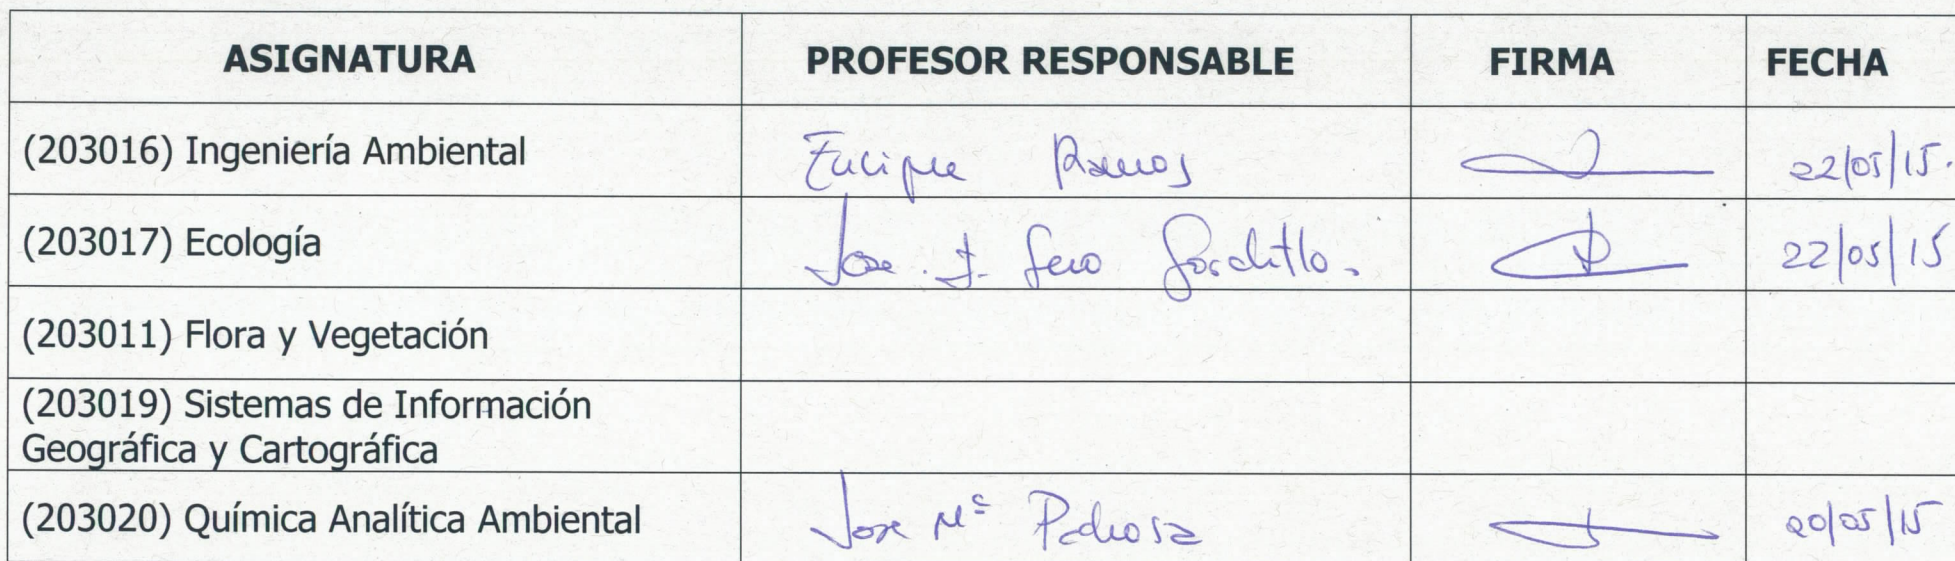 ASIGNATURA PROFESOR RESPONSABLE FIRMA FECHA
(203016) Ingeniería Ambiental Enrique Ramos 22/05/15.
(203017) Ecología Jose. J. Gordillo. 22/05/15
(203011) Flora y Vegetación
(203019) Sistemas de Información
Geográfica y Cartográfica
(203020) Química Analítica Ambiental Jose Mª Pedrosa 20/05/15